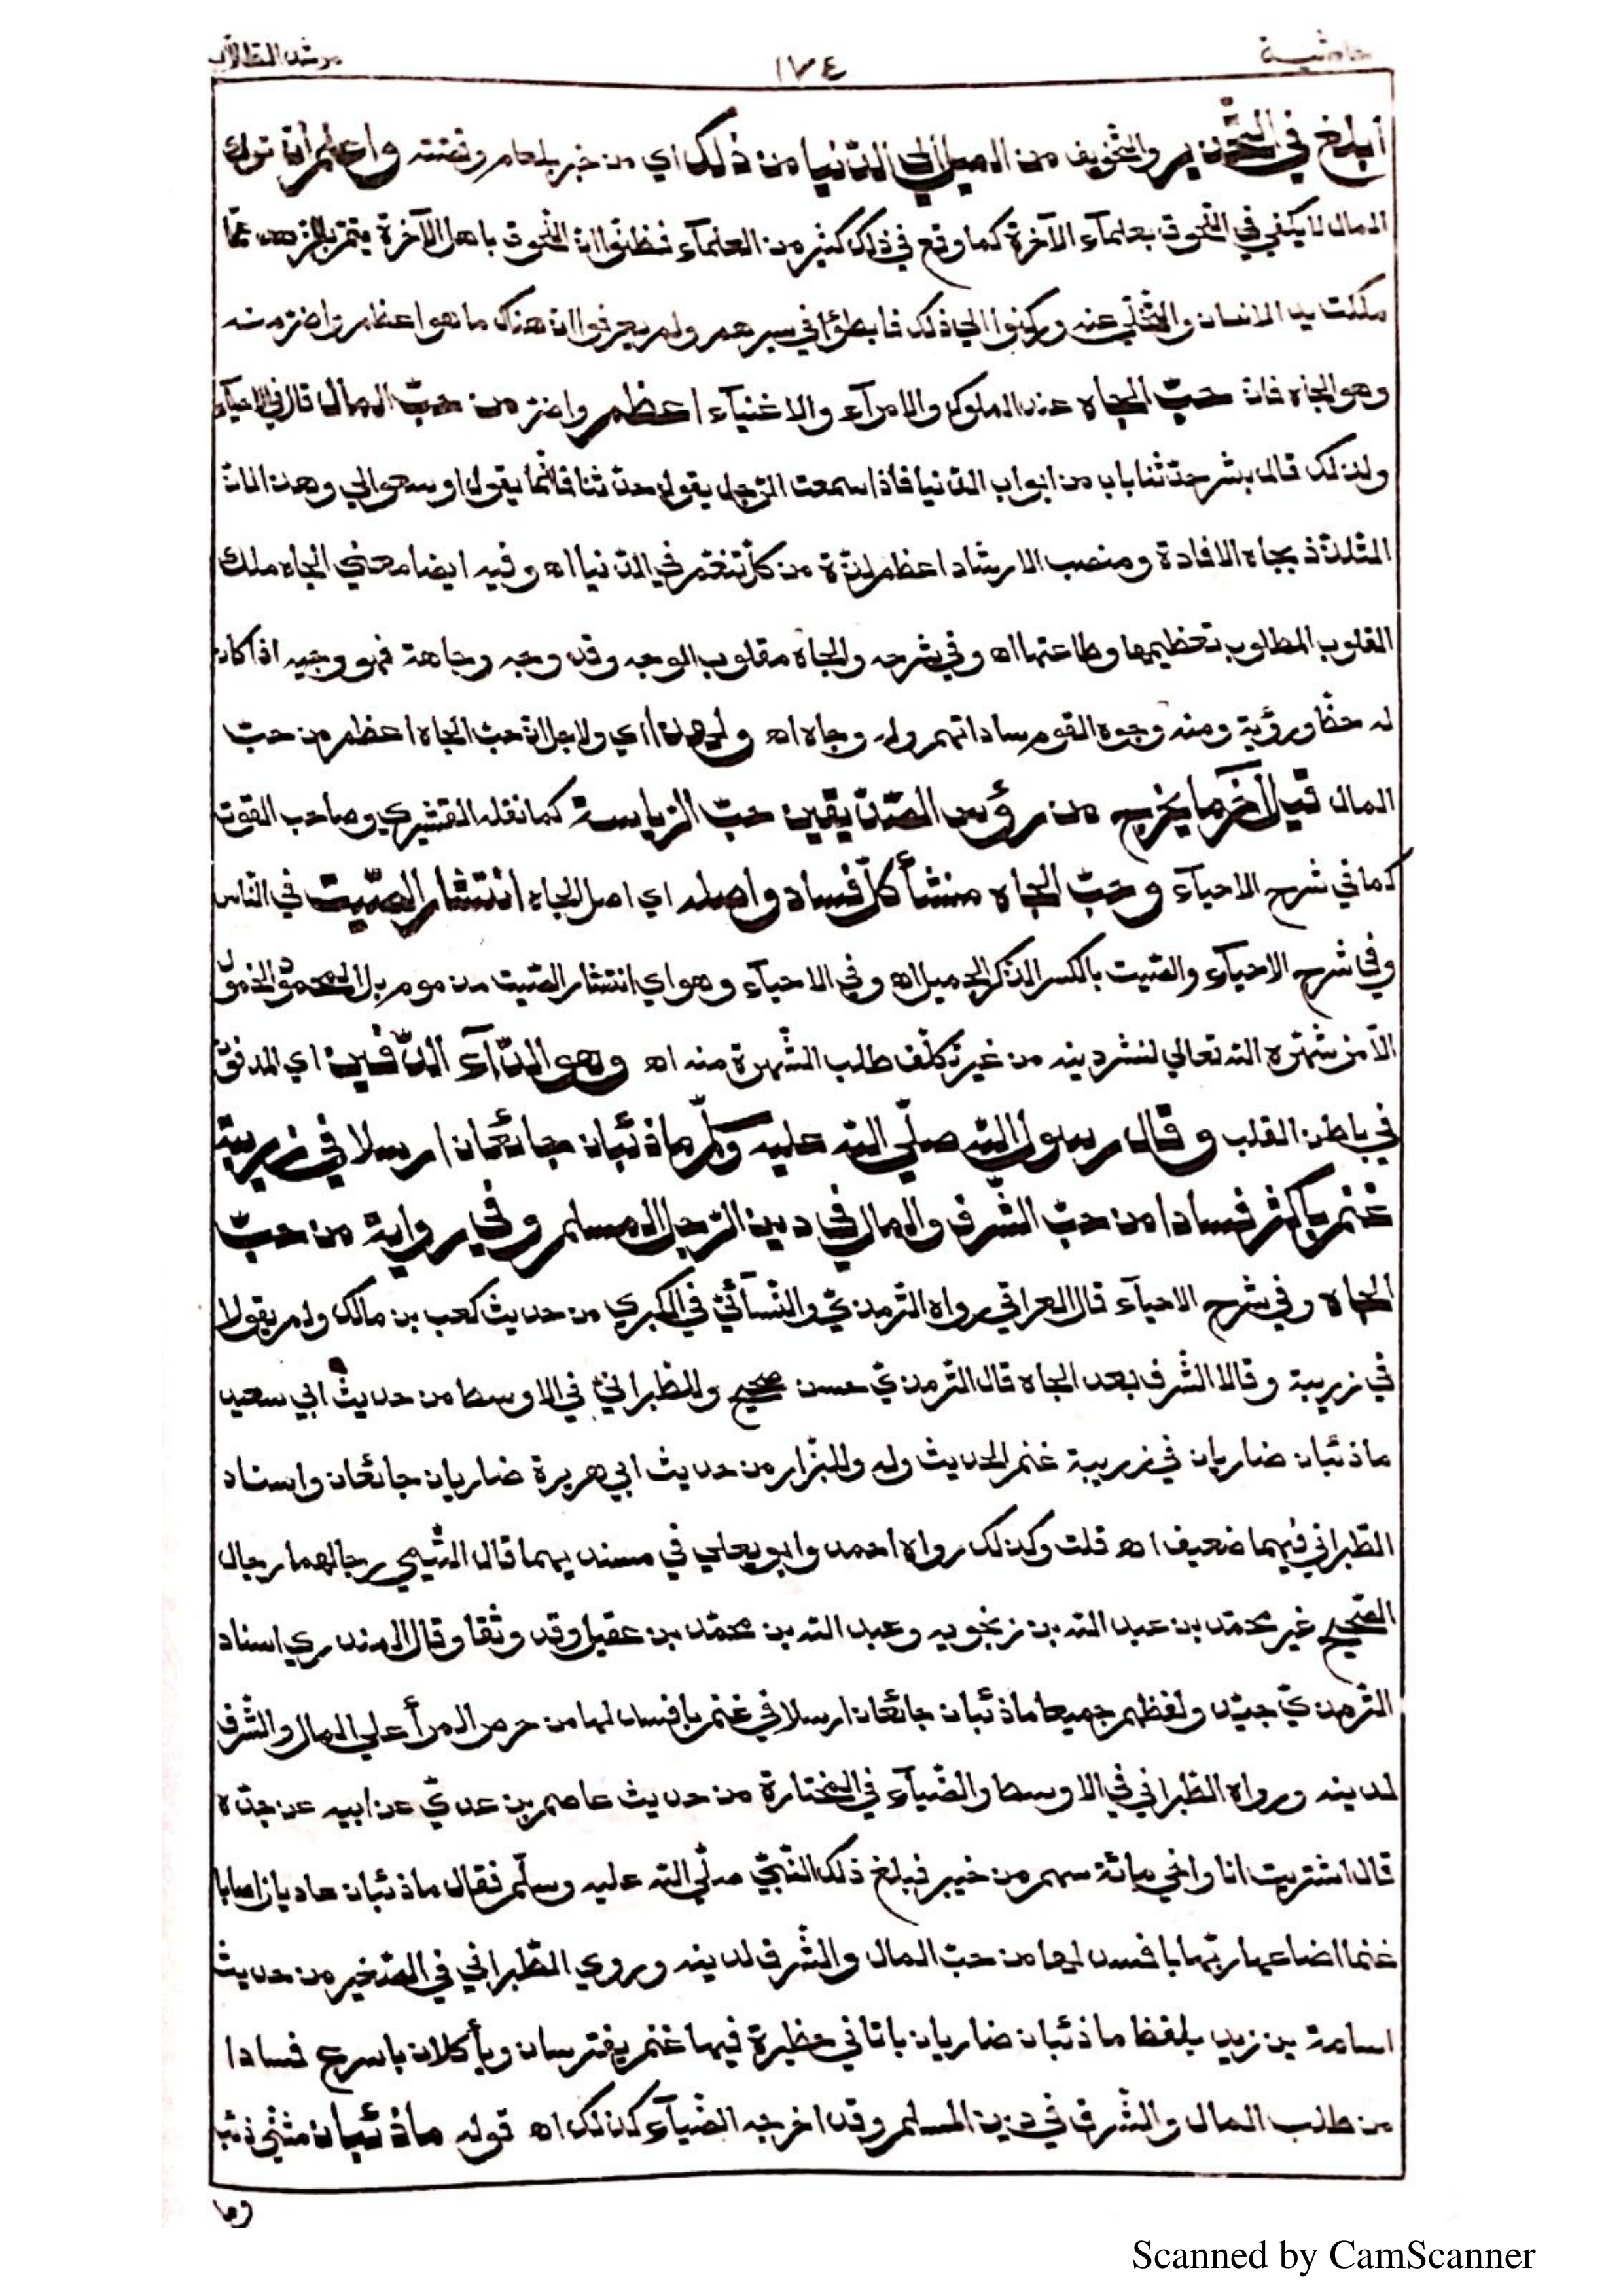 حاشية ١٧٤ مرشد الطلاب
أبلغ في التحذير والتخويف من الميل إلى الدنيا من ذلك اي من خبر بلعام وقصته واعلم أن ترك
المال لا يكفي في اللحوق بعلمآء الآخرة كما وقع في ذلك كثير من العلمآء فظنوا ان اللحوق باهل الآخرة يتم بالزهد عما
ملكت يد الانسان والتخلي عنه وركنوا الى ذلك فابطؤا في سيرهم ولم يعرفوا ان هناك ما هو اعظم واضر منه
وهو الجاه فان حب الجاه عند الملوك والامرآء والاغنيآء اعظم واضر من حب المال قال في الاحيآء
ولذلك قال بشر حدثنا باب من ابواب الدنيا فاذا سمعت الرجل يقول حدثنا فانما يقول اوسعوا لي وهذا لان
التلذذ بجاه الافادة ومنصب الارشاد اعظم لذة من كل تنعم في الدنيا اه وفيه ايضا معنى الجاه ملك
القلوب المطلوب تعظيمها وطاعتها اه وفي شرحه والجاه مقلوب الوجه وقد وجه وجاهة فهو وجيه اذا كان
له حظ ورؤية ومنه وجوه القوم ساداتهم وله وجاه اه ولهذا اي ولاجل ان حب الجاه اعظم من حب
المال قيل آخر ما يخرج من رؤس الصديقين حب الرياسة كما نقله القشيري وصاحب القوت
كما في شرح الاحيآء وحب الجاه منشأ كل فساد واصله اي اصل الجاه انتشار الصيت في الناس
وفي شرح الاحيآء والصيت بالكسر الذكر الجميل اه وفي الاحيآء وهو اي انتشار الصيت مذموم بل المحمود الخمول
الا من شهره الله تعالى لنشر دينه من غير تكلف طلب الشهرة منه اه وهو الدآء الدفين اي المدفون
في باطن القلب وقال رسول الله صلى الله عليه وسلم ما ذئبان جائعان ارسلا في زريبة
غنم باكثر فسادا من حب الشرف والمال في دين الرجل المسلم وفي رواية من حب
الجاه وفي شرح الاحيآء قال العراقي رواه الترمذي والنسآئي في الكبرى من حديث كعب بن مالك ولم يقولا
في زريبة وقالا الشرف بعد الجاه قال الترمذي حسن صحيح وللطبراني في الاوسط من حديث ابي سعيد
ما ذئبان ضاريان في زريبة غنم الحديث وله وللبزار من حديث ابي هريرة ضاريان جائعان واسناد
الطبراني فيهما ضعيف اه قلت وكذلك رواه احمد وابو يعلى في مسنديهما قال الهيثمي رجالهما رجال
الصحيح غير محمد بن عبد الله بن زنجويه وعبد الله بن محمد بن عقيل وقد وثقا وقال المنذري اسناد
الترمذي جيد ولفظهم جميعا ما ذئبان جائعان ارسلا في غنم بافسد لها من حرص المرأ على المال والشرف
لدينه ورواه الطبراني في الاوسط والضيآء في المختارة من حديث عاصم بن عدي عن ابيه عن جده
قال اشتريت انا واخي مائة سهم من خيبر فبلغ ذلك النبي صلى الله عليه وسلم فقال ما ذئبان عاديان اصابا
غنما اضاعها ربها بافسد لها من حب المال والشرف لدينه وروي الطبراني في الصغير من حديث
اسامة بن زيد بلفظ ما ذئبان ضاريان باتا في حظيرة فيها غنم يفترسان ويأكلان باسرع فسادا
من طلب المال والشرف في دين المسلم وقد اخرجه الضيآء كذلك اه قوله ما ذئبان مثنى ذئب
وما
Scanned by CamScanner